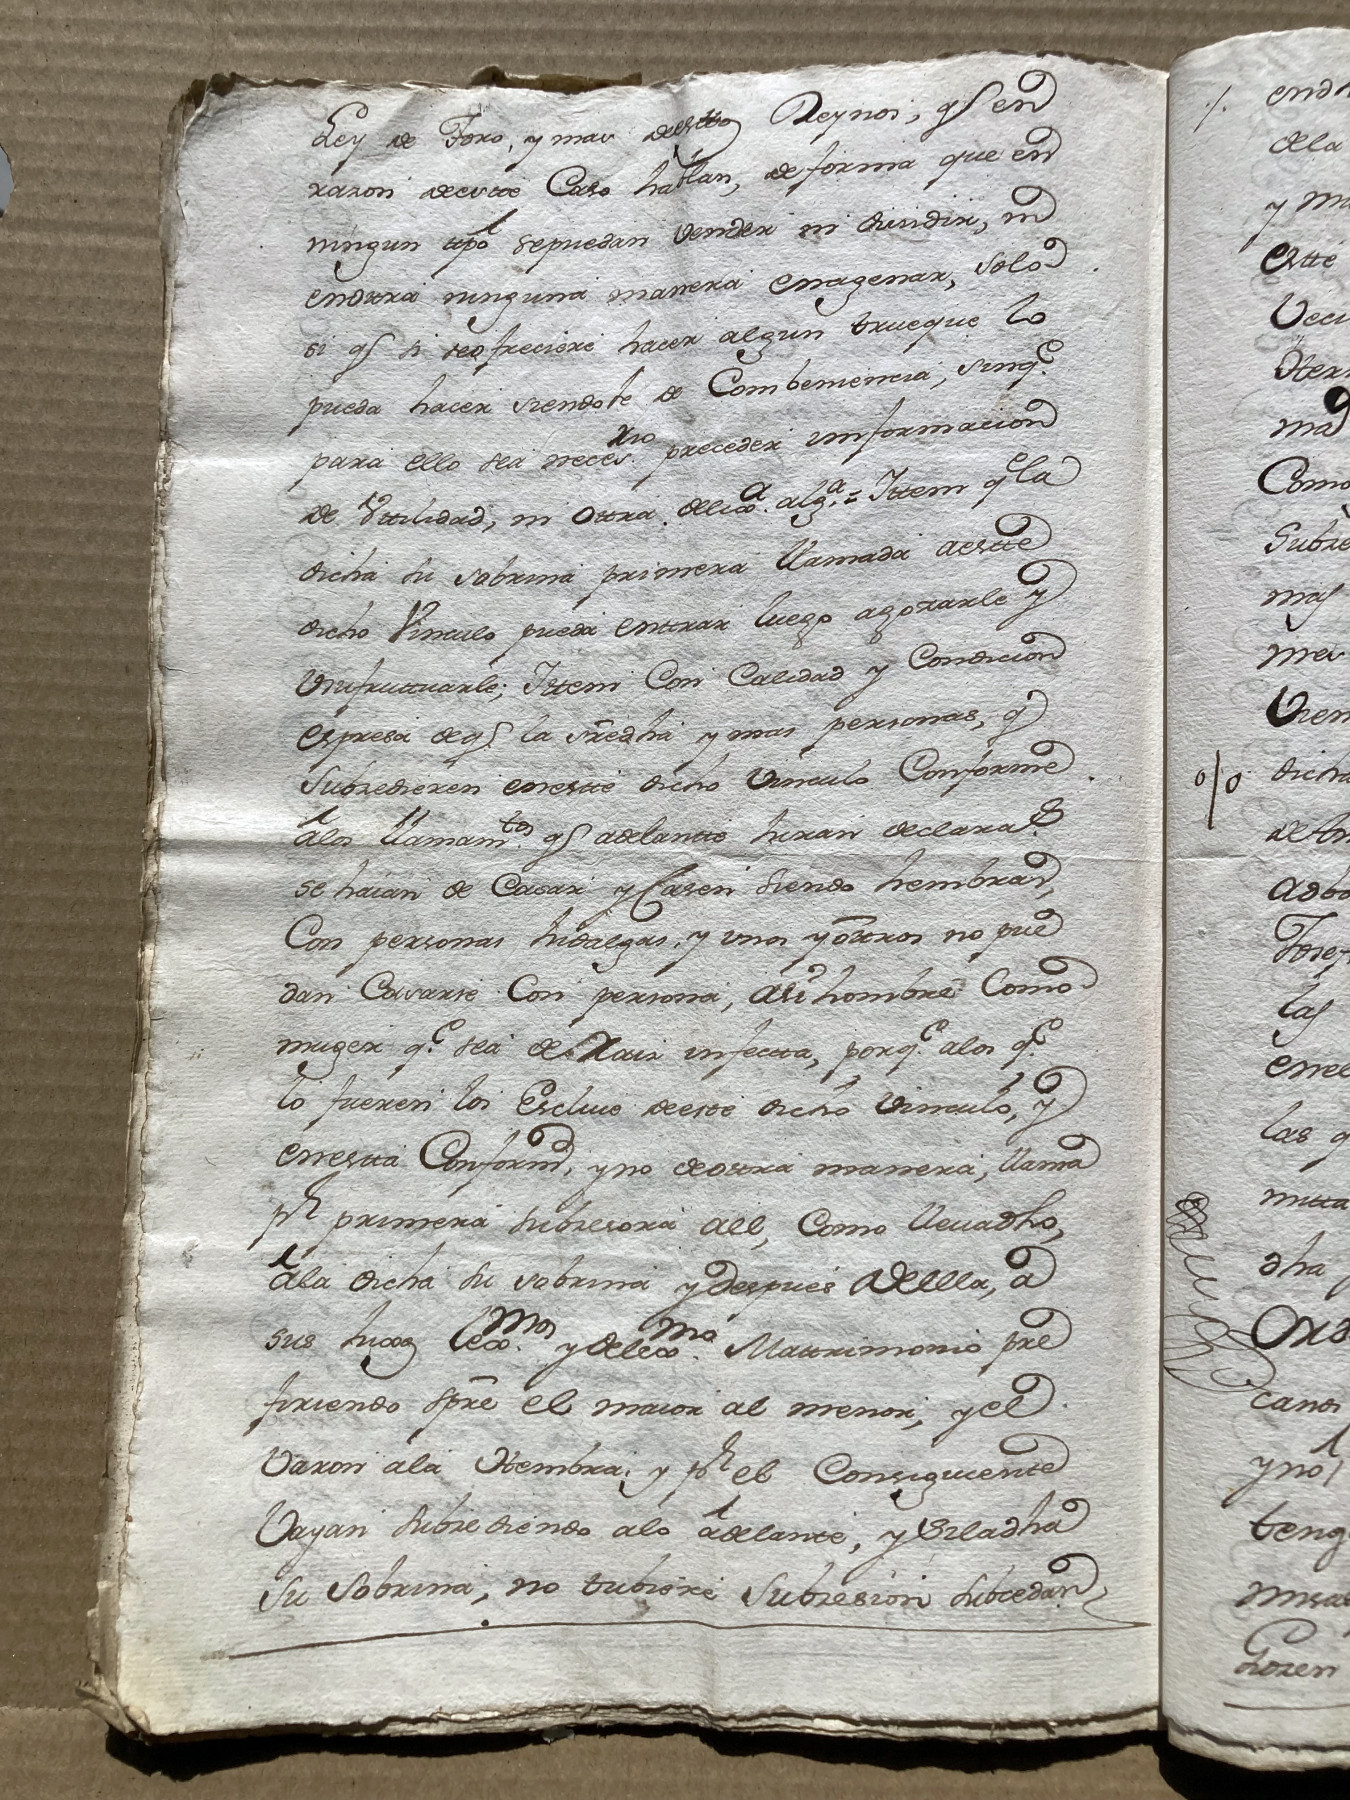 Ley de Toro, y mas destos Reynos, qe en
razon de este Caso hablan, de forma que en
ningun tpo sepuedan vender ni diuidir, ni
enottra ninguna manera enagenar, solo
si qe si seofreciere hacer algun trueque lo
pueda hacer siendole de Combeniencia, sinqe.
para ello sea neces.rio preceder ynformacion
de Vttilidad, ni ottra. delixa. alga. = Yttem qe la
dicha su sobrina primera llamada aestte
dicho Vinculo pueda enttrar luego agozarle y
Vsufructuarle; Yttem Con Calidad y Condicion
expresa deqe la sredha y mas personas, qe
Subzedieren enestte dicho Vinculo Conforme
alos llamamtos. qe adelantte hiran declarados
se haian de Casar y Casen siendo hembras,
Con personas hidalgas, y unos yottros no pue
dan Casarse Con persona, asi hombre Como
muger qe. sea de Raiz infectta, porqe. alos qe.
lo fueren los Escluio deeste dicho Vinculo, y
enestta Conformd, y no deottra manera, llama
pr primera subzesora ael, Como lleuadho,
ala dicha su sobrina ydespues de ella, a
sus hixos lexmos. ydelexmo. Mattrimonio pre
firiendo spre el maior al menor, yel
Varon ala Hembra; y pr el Consiguiente
Vayan subzediendo alo adelante, ysiladha
su sobrina, no tubiere Subzesion subcedan
endh
dela
y m
estte
Veci
Herm
Como
Subze
mas
mer
Vien
dicha
las
enel
las q
mitta
dha
canos
y no
teng
misas
Gozen